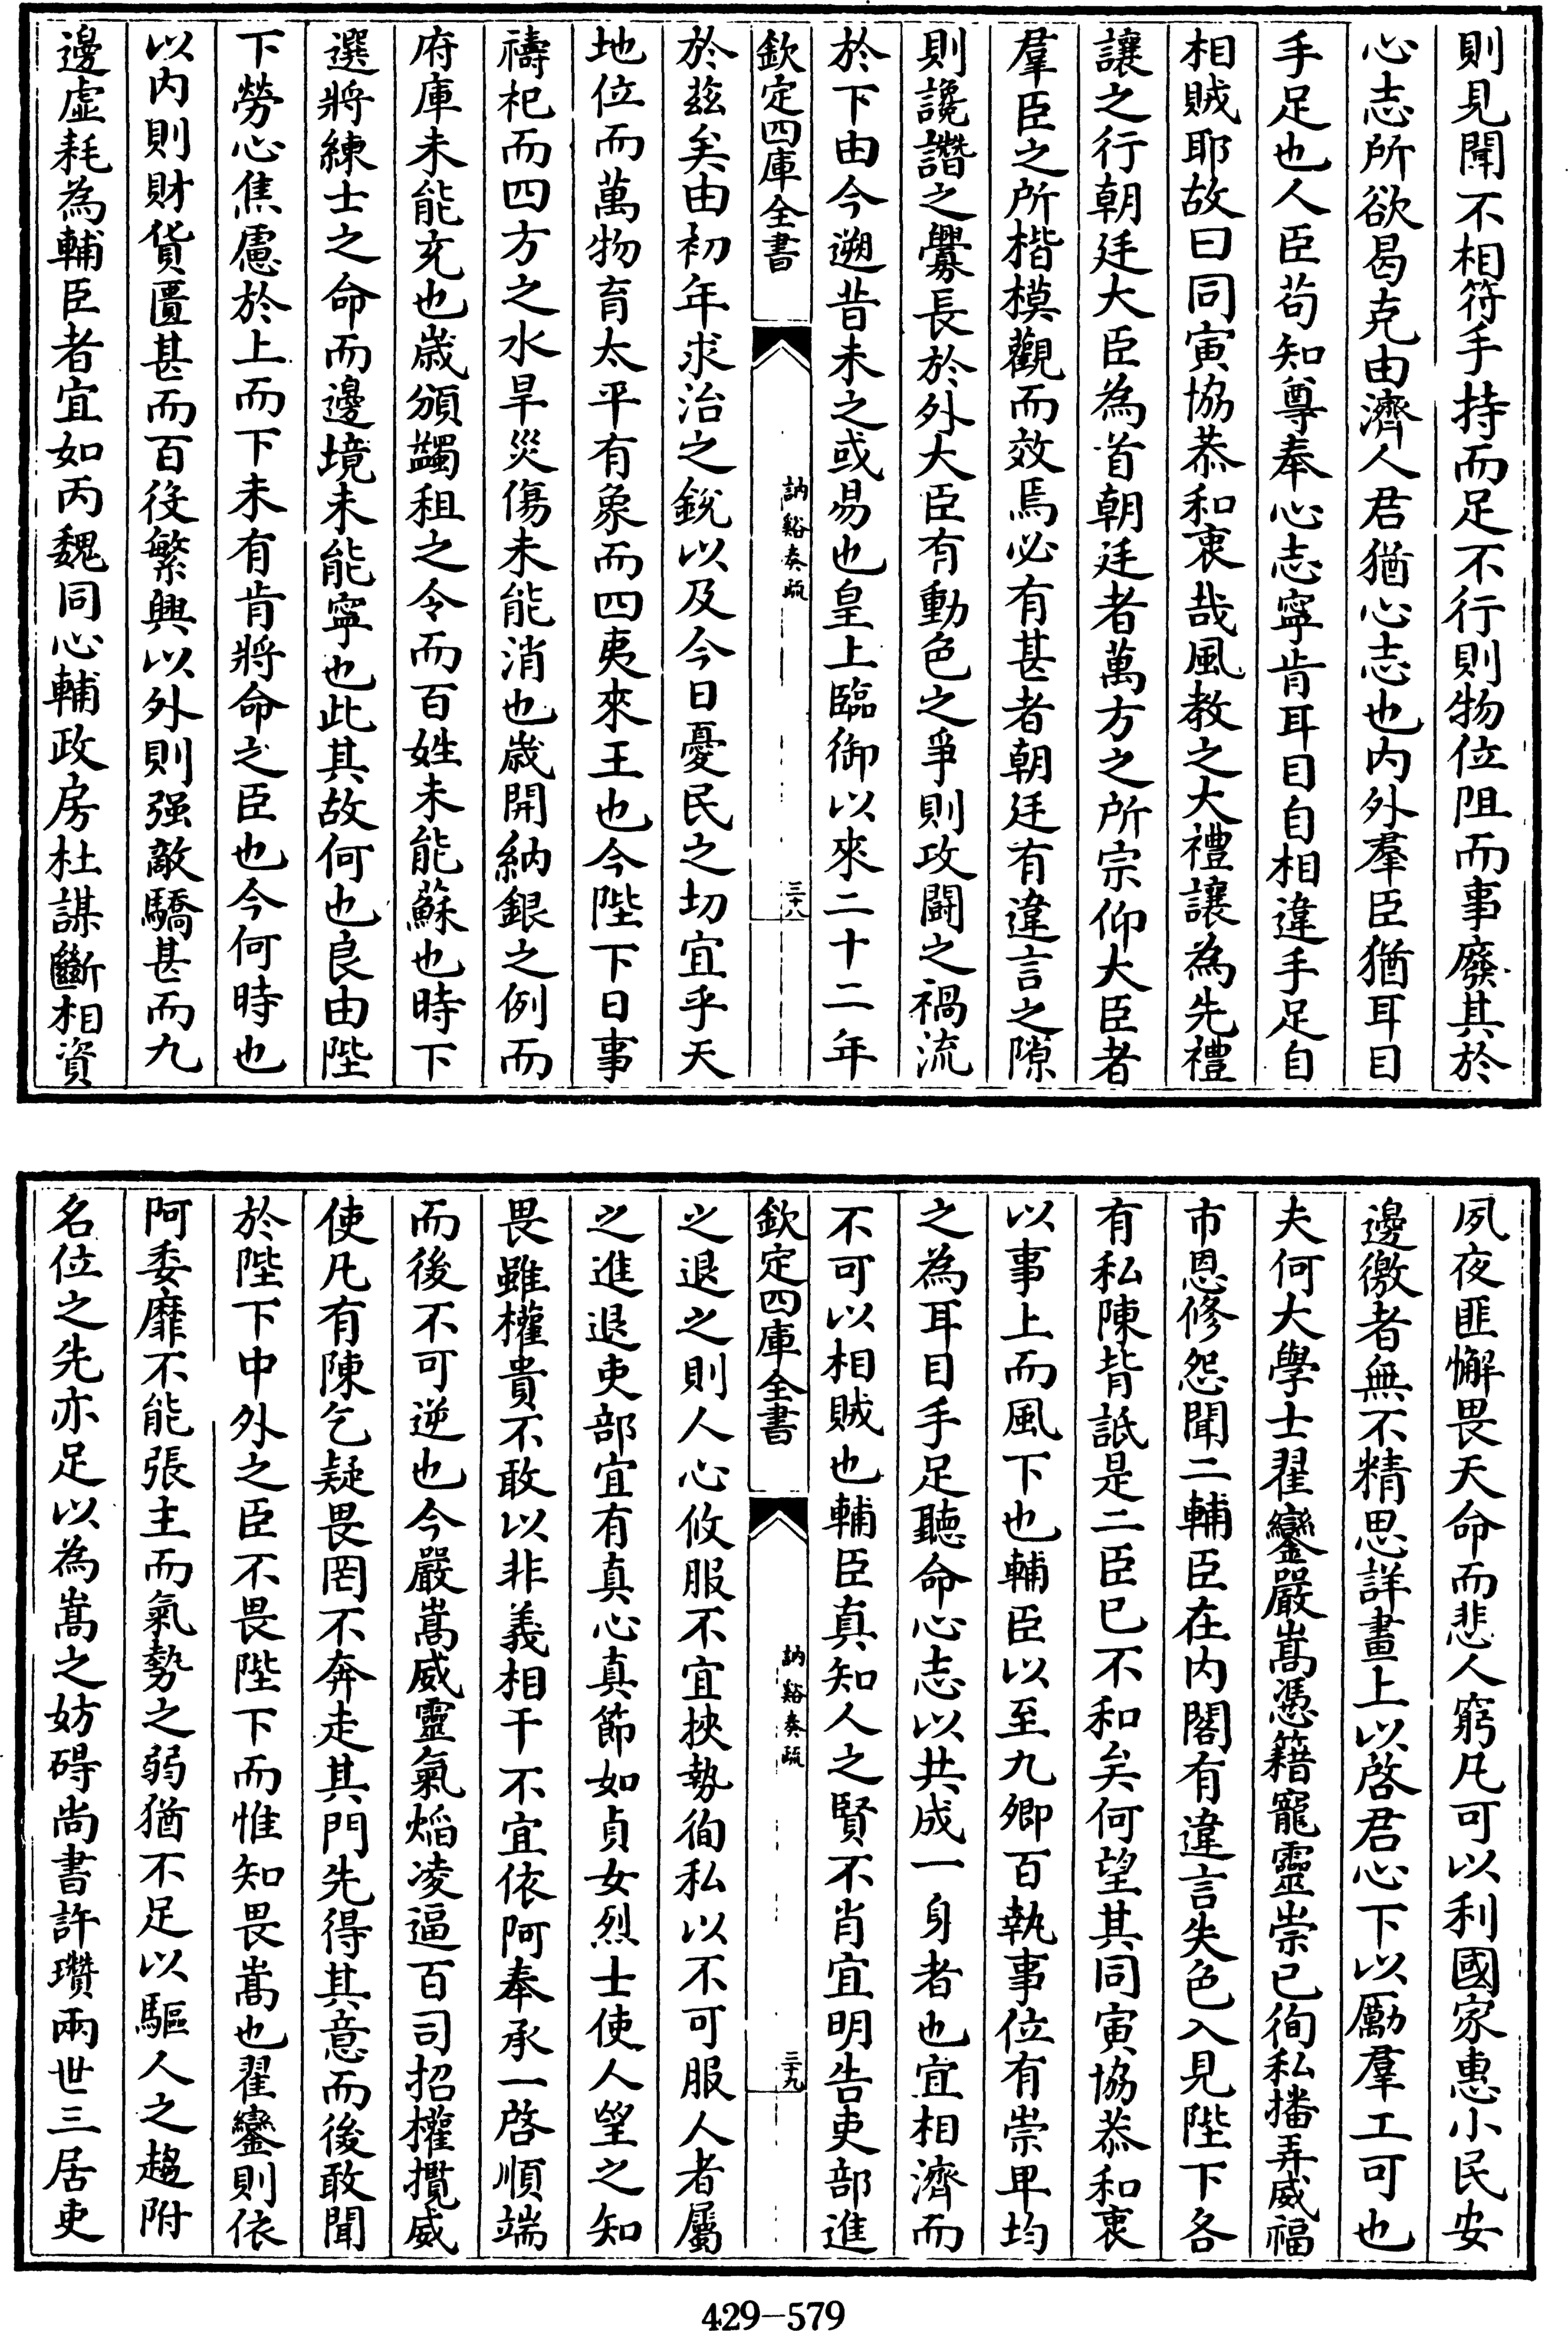 則見聞不相符手持而足不行則物位阻而事廢其於
心志所欲曷克由濟人君猶心志也内外羣臣猶耳目
手足也人臣苟知尊奉心志寧肯耳目自相違手足自
相賊耶故曰同寅協恭和衷哉風教之大禮讓為先禮
讓之行朝廷大臣為首朝廷者萬方之所宗仰大臣者
羣臣之所楷模觀而效焉必有甚者朝廷有違言之隙
則讒譖之釁長於外大臣有動色之爭則攻鬬之禍流
於下由今遡昔未之或易也皇上臨御以來二十二年
欽定四庫全書
訥谿奏疏
三十八
於茲矣由初年求治之銳以及今日憂民之切宜乎天
地位而萬物育太平有象而四夷來王也今陛下日事
禱祀而四方之水旱災傷未能消也歳開納銀之例而
府庫未能充也歳頒蠲租之令而百姓未能蘇也時下
選將練士之命而邊境未能寧也此其故何也良由陛
下勞心焦慮於上而下未有肯將命之臣也今何時也
以内則財貨匱甚而百役繁興以外則强敵驕甚而九
邊虛耗為輔臣者宜如丙魏同心輔政房杜謀斷相資
夙夜匪懈畏天命而悲人窮凡可以利國家惠小民安
邊徼者無不精思詳畫上以啓君心下以勵羣工可也
夫何大學士翟鑾嚴嵩憑籍寵靈崇已徇私播弄威福
市恩修怨聞二輔臣在内閣有違言失色入見陛下各
有私陳背詆是二臣已不和矣何望其同寅協恭和衷
以事上而風下也輔臣以至九卿百執事位有崇卑均
之為耳目手足聽命心志以共成一身者也宜相濟而
不可以相賊也輔臣真知人之賢不肖宜明告吏部進
欽定四庫全書
訥谿奏疏
三十九
之退之則人心攸服不宜挾勢徇私以不可服人者屬
之進退吏部宜有真心真節如貞女烈士使人望之知
畏雖權貴不敢以非義相干不宜依阿奉承一啓順端
而後不可逆也今嚴嵩威靈氣焰凌逼百司招權攬威
使凡有陳乞疑畏罔不奔走其門先得其意而後敢聞
於陛下中外之臣不畏陛下而惟知畏嵩也翟鑾則依
阿委靡不能張主而氣勢之弱猶不足以驅人之趨附
名位之先亦足以為嵩之妨碍尚書許瓚兩世三居吏
429-579